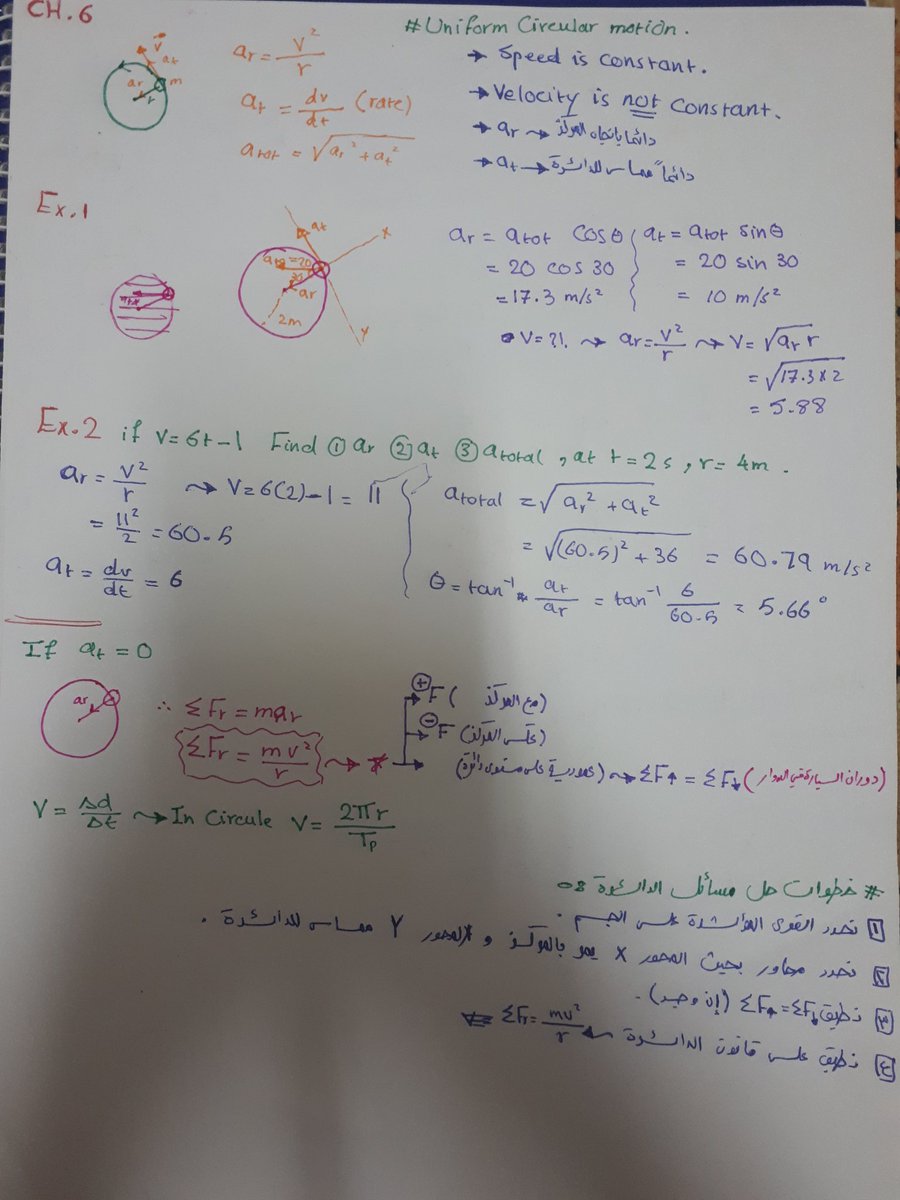 CH.6
# Uniform Circular motion.
→ Speed is constant.
→ Velocity is not constant.
→ ar → دائما باتجاه المركز
→ at → دائماً مماس للدائرة
v at ar m r
ar = v²/r
at = dv/dt (rate)
atot = √(ar² + at²)
Ex.1
at x
atot = 20
30
ar
2m
y
ar = atot cosθ
= 20 cos 30
= 17.3 m/s²
at = atot sinθ
= 20 sin 30
= 10 m/s²
• V = ?!. → ar = v²/r → V = √(ar r)
= √(17.3 x 2)
= 5.88
Ex.2 if v = 6t - 1 Find ① ar ② at ③ atotal , at t = 2s , r = 4m .
ar = v²/r → V = 6(2) - 1 = 11
= 11²/2 = 60.5
at = dv/dt = 6
atotal = √(ar² + at²)
= √((60.5)² + 36) = 60.79 m/s²
θ = tan⁻¹ at/ar = tan⁻¹ 6/60.5 = 5.66°
If at = 0
ar
∴ ΣFr = mar
ΣFr = mv²/r → *
⊕ F (مع المركز)
⊖ F (عكس المركز)
(عمودية على مستوى دائرة) → ΣF↑ = ΣF↓ (دوران السيارة في الدوار)
V = Δd/Δt → In Circule V = 2πr/Tp
# خطوات حل مسائل الدائرة :-
١ نحدد القوى المؤثرة على الجسم .
٢ نحدد محاور بحيث المحور x يمر بالمركز و المحور y مماس للدائرة .
٣ نطبق ΣF↑ = ΣF↓ (إن وجد) .
٤ نطبق على قانون الدائرة ← ΣFr = mv²/r